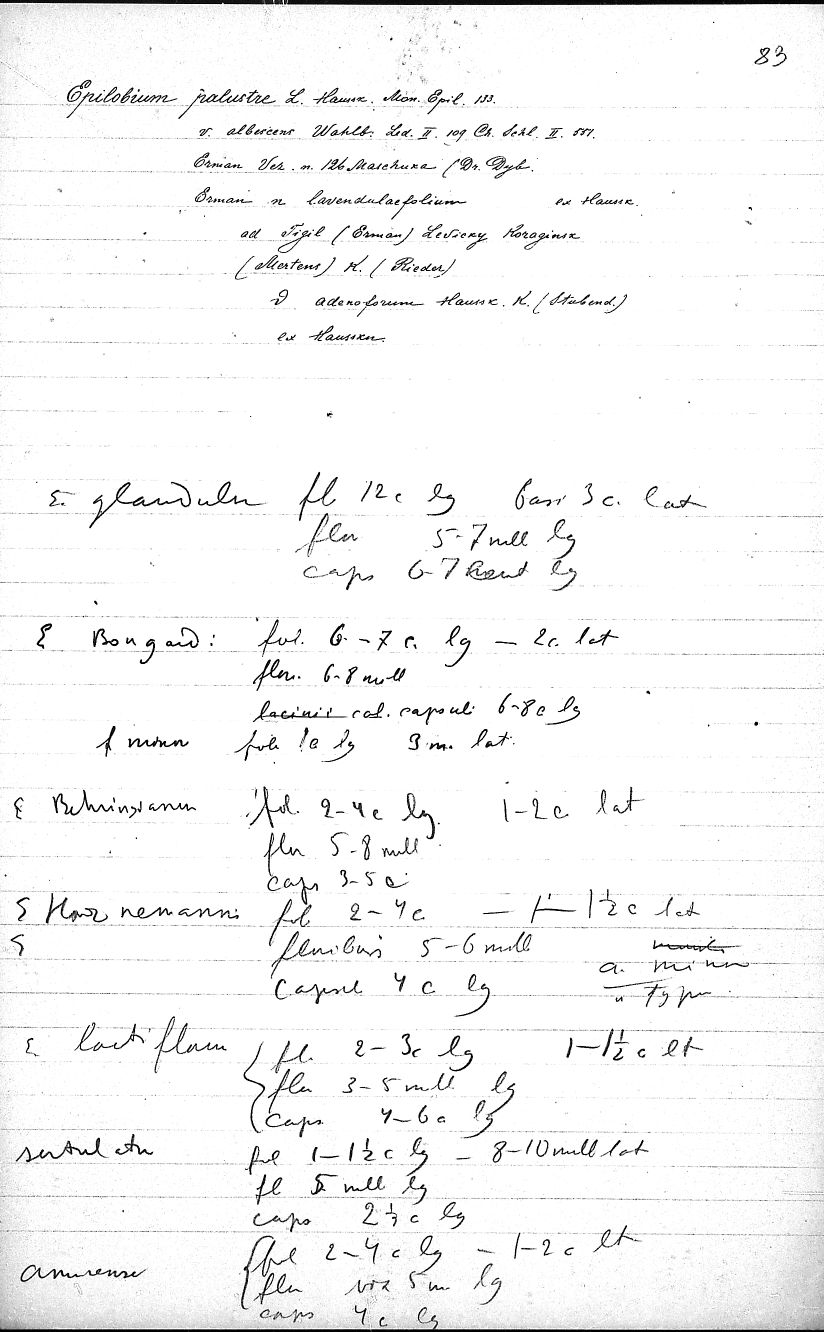 83
Epilobium palustre L. Haussk. Mon. Epil. 133.
v. albescens Wahlb. Led. II. 109 Ch. Schl. II. 551.
Erman Ver. n. 126 Maschura (Dr. Dyb.
Erman n lavendulaefolium ex Haussk.
ad Tigil (Erman) Levicky Koraginsk
(Mertens) K. (Rieder)
adenoforum Haussk. K. (Stubend.)
ex Hausskn.
E. glandulu fl 12 c lg basi 3 c. lat
flor 5-7 mll lg
caps 6-7 cent lg
E Bongard: fol. 6-7 c. lg — 2c. lat
flor. 6-8 mll
lacinii cal. capsuli 6-8 c lg
f minor foli 1c lg 3 m. lat.
E Behringianum fol. 2-4 c lg. 1-2 c lat
flor 5-8 mll
caps 3-5 c
E Hornemanni fol 2-4 c — 1-1½ c lat
E floribus 5-6 mll
a. minor
Capsul 4 c lg
" typu
E lactiflorum fl. 2-3c lg 1-1½ c lt
flor 3-5 mll lg
caps 4-6 c lg
sertulatu fol 1-1½ c lg — 8-10 mll lat
fl 5 mll lg
caps 2½ c lg
amurense fol 2-4 c lg — 1-2 c lt
flor vix 5 m lg
caps 4 c lg